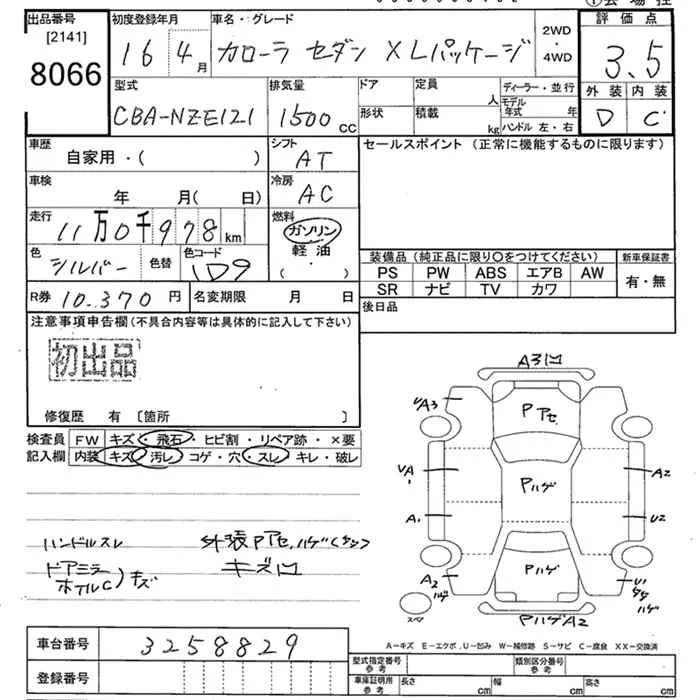 出品番号 初度登録年月 車名・グレード 2WD 評価点
[2141]
8066
16 4月 カローラ セダン XLパッケージ ・ 4WD 3.5
外装 内装
D C
型式 排気量 ドア 定員 人 ディーラー・並行
CBA-NZE121 1500 CC 形状 積載 kg モデル年式 年
ハンドル 左・右
車歴 シフト セールスポイント (正常に機能するものに限ります)
自家用・( ) AT
車検 冷房
年 月( 日) AC
走行 燃料
11万0千978km ガソリン
軽油
( )
色 色替 色コード
シルバー 1D9
装備品 (純正品に限り○をつけてください) 新車保証書
PS PW ABS エアB AW 有・無
SR ナビ TV カワ
R券 10.370円 名変期限 月 日 後日品
注意事項申告欄(不具合内容等は具体的に記入して下さい)
初出品
修復歴 有 [箇所 ]
検査員 FW キズ・飛石・ヒビ割・リペア跡・×要
記入欄 内装 キズ・汚レ・コゲ・穴・スレ・キレ・破レ
ハンドルスレ
ドアミラー
ホイルC)キズ
外張Pアセ,ハゲ
キズ凹
A3凹
Pアセ
UA3
UA
Pハゲ
A2
A1
U2
A2
ハゲ
Pハゲ
U1
ハゲ
スペア
PハゲA2
A-キズ E-エクボ U-凹み W-補修跡 S-サビ C-腐食 XX-交換済
車台番号 3258829
登録番号
型式指定番号 参考 類別区分番号 参考
車庫証明用 参考 長さ cm 幅 cm 高さ cm